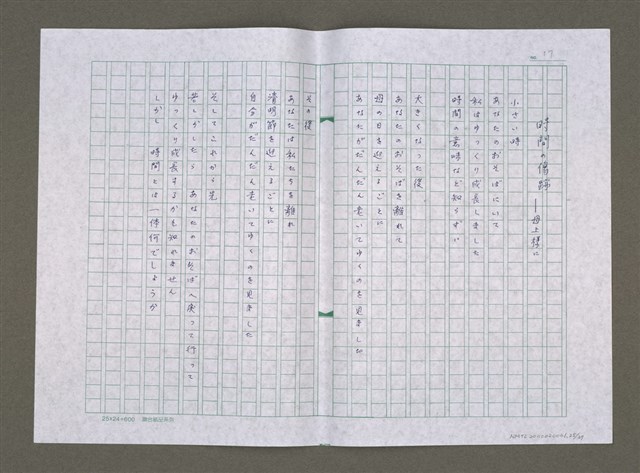 No. 17
時間の傷跡 ――母上様に
小さい時
あなたのおそばにいて
私はゆっくり成長しました
時間の意味など知らずに
大きくなった後
あなたのおそばを離れて
母の日を迎えるごとに
あなたがだんだん老いてゆくのを見ました
その後
あなたは私たちを離れ
清明節を迎えるごとに
自分がだんだん老いてゆくのを見ました
そしてこれから先
若しかしたら あなたのおそばへ戻って行って
ゆっくり成長するかも知れません
しかし 時間とは一体何でしょうか
25×24=600